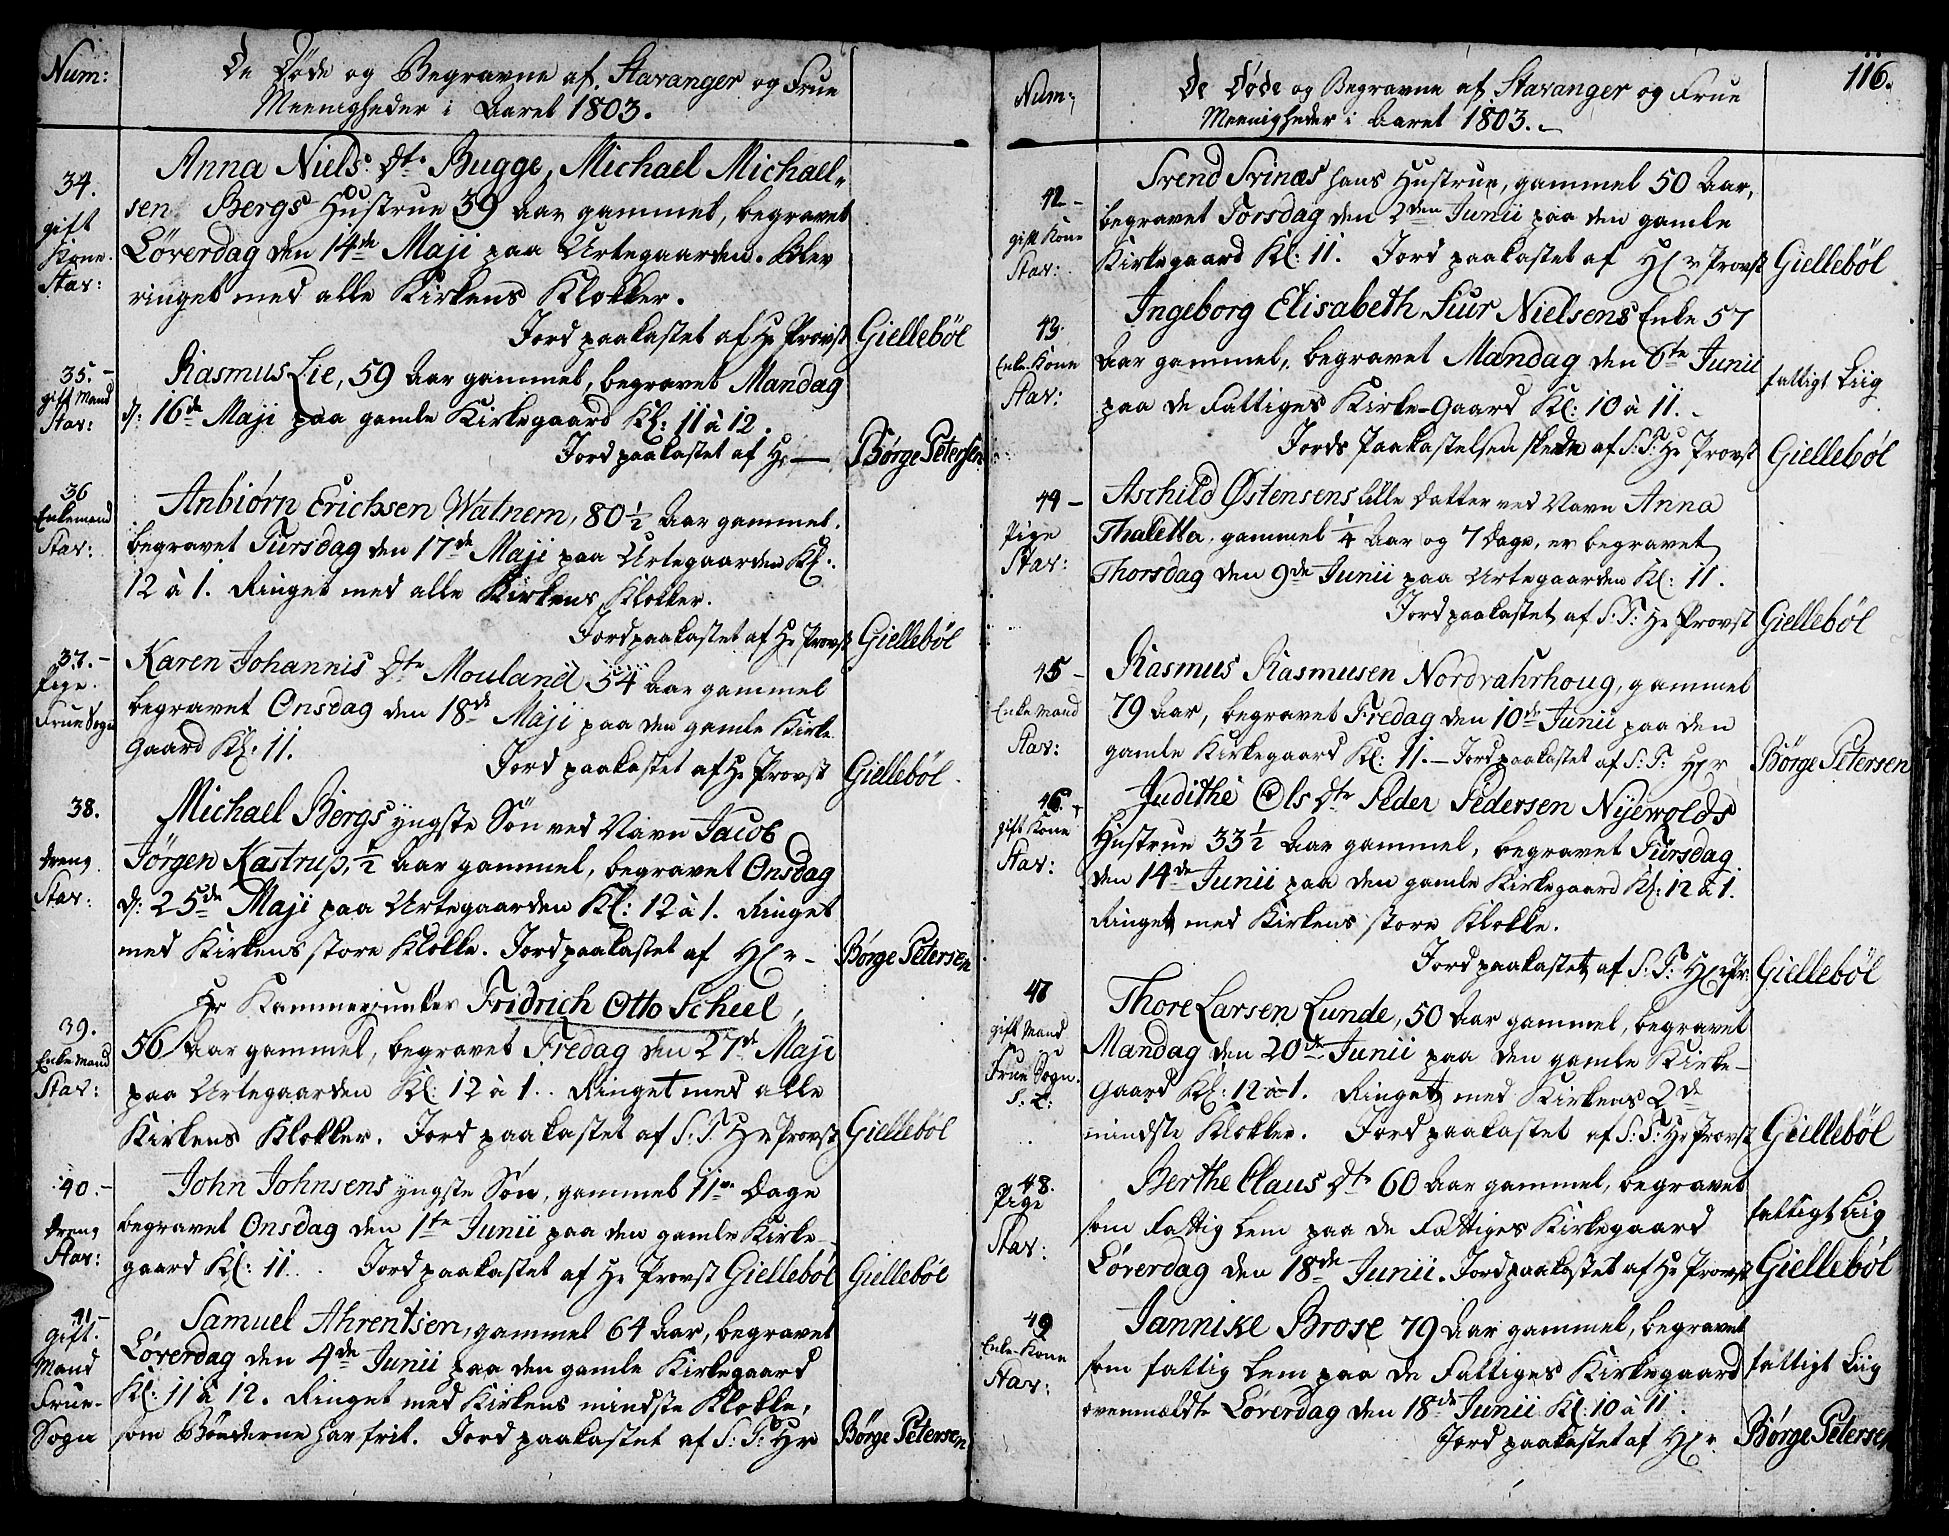 Num:
De Døde og Begravne af Stavanger og Frue
Meenigheder i Aaret 1803.
34.
gift
Kone.
Stav:
Anna Niels Dtr Bugge, Michael Michael-
sen Bergs Hustrue 39 Aar gammel, begravet
Løverdag den 14de Maji paa Urtegaarden. Blev
ringet med alle Kirkens Klokker.
Jord paakastet af Hr Provst Giellebøl
35.-
gift Mand
Stav:
Rasmus Lie, 59 Aar gammel, begravet Mandag
d: 16de Maji paa gamle Kirkegaard Kl: 11 à 12.
Jord paakastet af Hr — Børge Petersen
36
Enkemand
Stav:
Anbiørn Erichsen Watnem, 80 1/2 Aar gammel.
begravet Tirsdag den 17de Maji paa Urtegaarden Kl:
12 à 1. Ringet med alle Kirkens Klokker.
Jord paakastet af Hr Provst Giellebøl
37.-
Pige.
Frue Sogn
Karen Johannis Dtr Mouland 54 Aar gammel
begravet Onsdag den 18de Maji paa den gamle Kirke
Gaard Kl: 11.
Jord paakastet af Hr Provst Giellebøl
38.
dreng
Stav:
Michael Bergs yngste Søn ved Navn Jacob
Jørgen Kastrup, 1/2 Aar gammel, begravet Onsdag
d: 25de Maji paa Urtegaarden Kl: 12 à 1. Ringet
med Kirkens store Klokke. Jord paakastet af Hr - Børge Petersen
39.
Enke Mand
Stav:
Hr Kammerjunker Fridrich Otto Scheel,
56 Aar gammel, begravet Fredag den 27de Maji
paa Urtegaarden Kl: 12 à 1. Ringet med alle
Kirkens Klokker. Jord paakastet af S: T: Hr Provst Giellebøl
40.-
dreng
Stav:
John Johnsens yngste Søn, gammel 11 Dage
begravet Onsdag den 1te Junii paa den gamle Kirke-
gaard Kl: 11. Jord paakastet af Hr Provst Giellebøl Giellebøl
41-
gift.
Mand
Frue-
Sogn
Samuel Ahrentsen, gammel 64 Aar, begravet
Løverdag den 4de Junii paa den gamle Kirkegaard
Kl: 11 à 12. Ringet med Kirkens mindste Klokke,
som Bønderne har frit. Jord paakastet af S: T: Hr Børge Petersen
116.
Num:
De Døde og Begravne af Stavanger og Frue
Meenigheder i Aaret 1803.-
42-
gift Kone
Stav:
Svend Svinæs hans Hustrue, gammel 50 Aar,
begravet Torsdag den 2den Junii paa den gamle
Kirkegaard Kl: 11. Jord paakastet af Hr Provst Giellebøl
43.
Enke-Kone
Stav:
Ingeborg Elisabeth Siur Nielsens Enke 57
Aar gammel, begravet Mandag den 6te Junii
paa de Fattiges Kirke-Gaard Kl: 10 à 11.-
fattigt Liig
Jords Paakastelsen skede af S: T: Hr Provst Giellebøl
44-
Pige
Stav:
Aschild Østensens lille Datter ved Navn Anna
Thaletta, gammel 1/4 Aar og 7 Dage, er begravet
Thorsdag den 9de Junii paa Urtegaarden Kl: 11.
Jord paakastet af S: T: Hr Provst Giellebøl
45-
Enke Mand
Stav:
Rasmus Rasmusen Nordrahrhoug, gammel
79 Aar, begravet Fredag den 10de Junii paa den
gamle Kirkegaard Kl: 11.- Jord paakastet af S: T: Hr Børge Petersen
46.-
gift Kone
Stav:
Judithe Ols Dtr Peder Pedersen Nyewolds
Hustrue 33 1/2 Aar gammel, begravet Tirsdag
den 14de Junii paa den gamle Kirkegaard Kl: 12 à 1.
Ringet med Kirkens store Klokke.
Jord paakastet af S: T: Hr Pr: Giellebøl
47
gift Mand
Frue Sogn.
Thore Larsen Lunde, 50 Aar gammel, begravet
Mandag den 20de Junii paa den gamle Kirke-
Gaard Kl: 12 à 1. Ringet med Kirkens 2de
mindste Klokker. Jord paakastet af S: T: Hr Provst Giellebøl
48.
Pige
Stav:
Berthe Claus Dtr 60 Aar gammel, begravet
som Fattig Lem paa de Fattiges Kirkegaard
fattigt Liig
Løverdag den 18de Junii. Jord paakastet af Hr Provst Giellebøl
49
Enke-Kone
Stav:
Jannike Brose 79 Aar gammel, begravet
som fattig Lem paa de Fattiges Kirkegaard fattigt Liig
ovenmældte Løverdag den 18de Junii Kl: 10 à 11.
Jord paakastet af Hr Børge Petersen